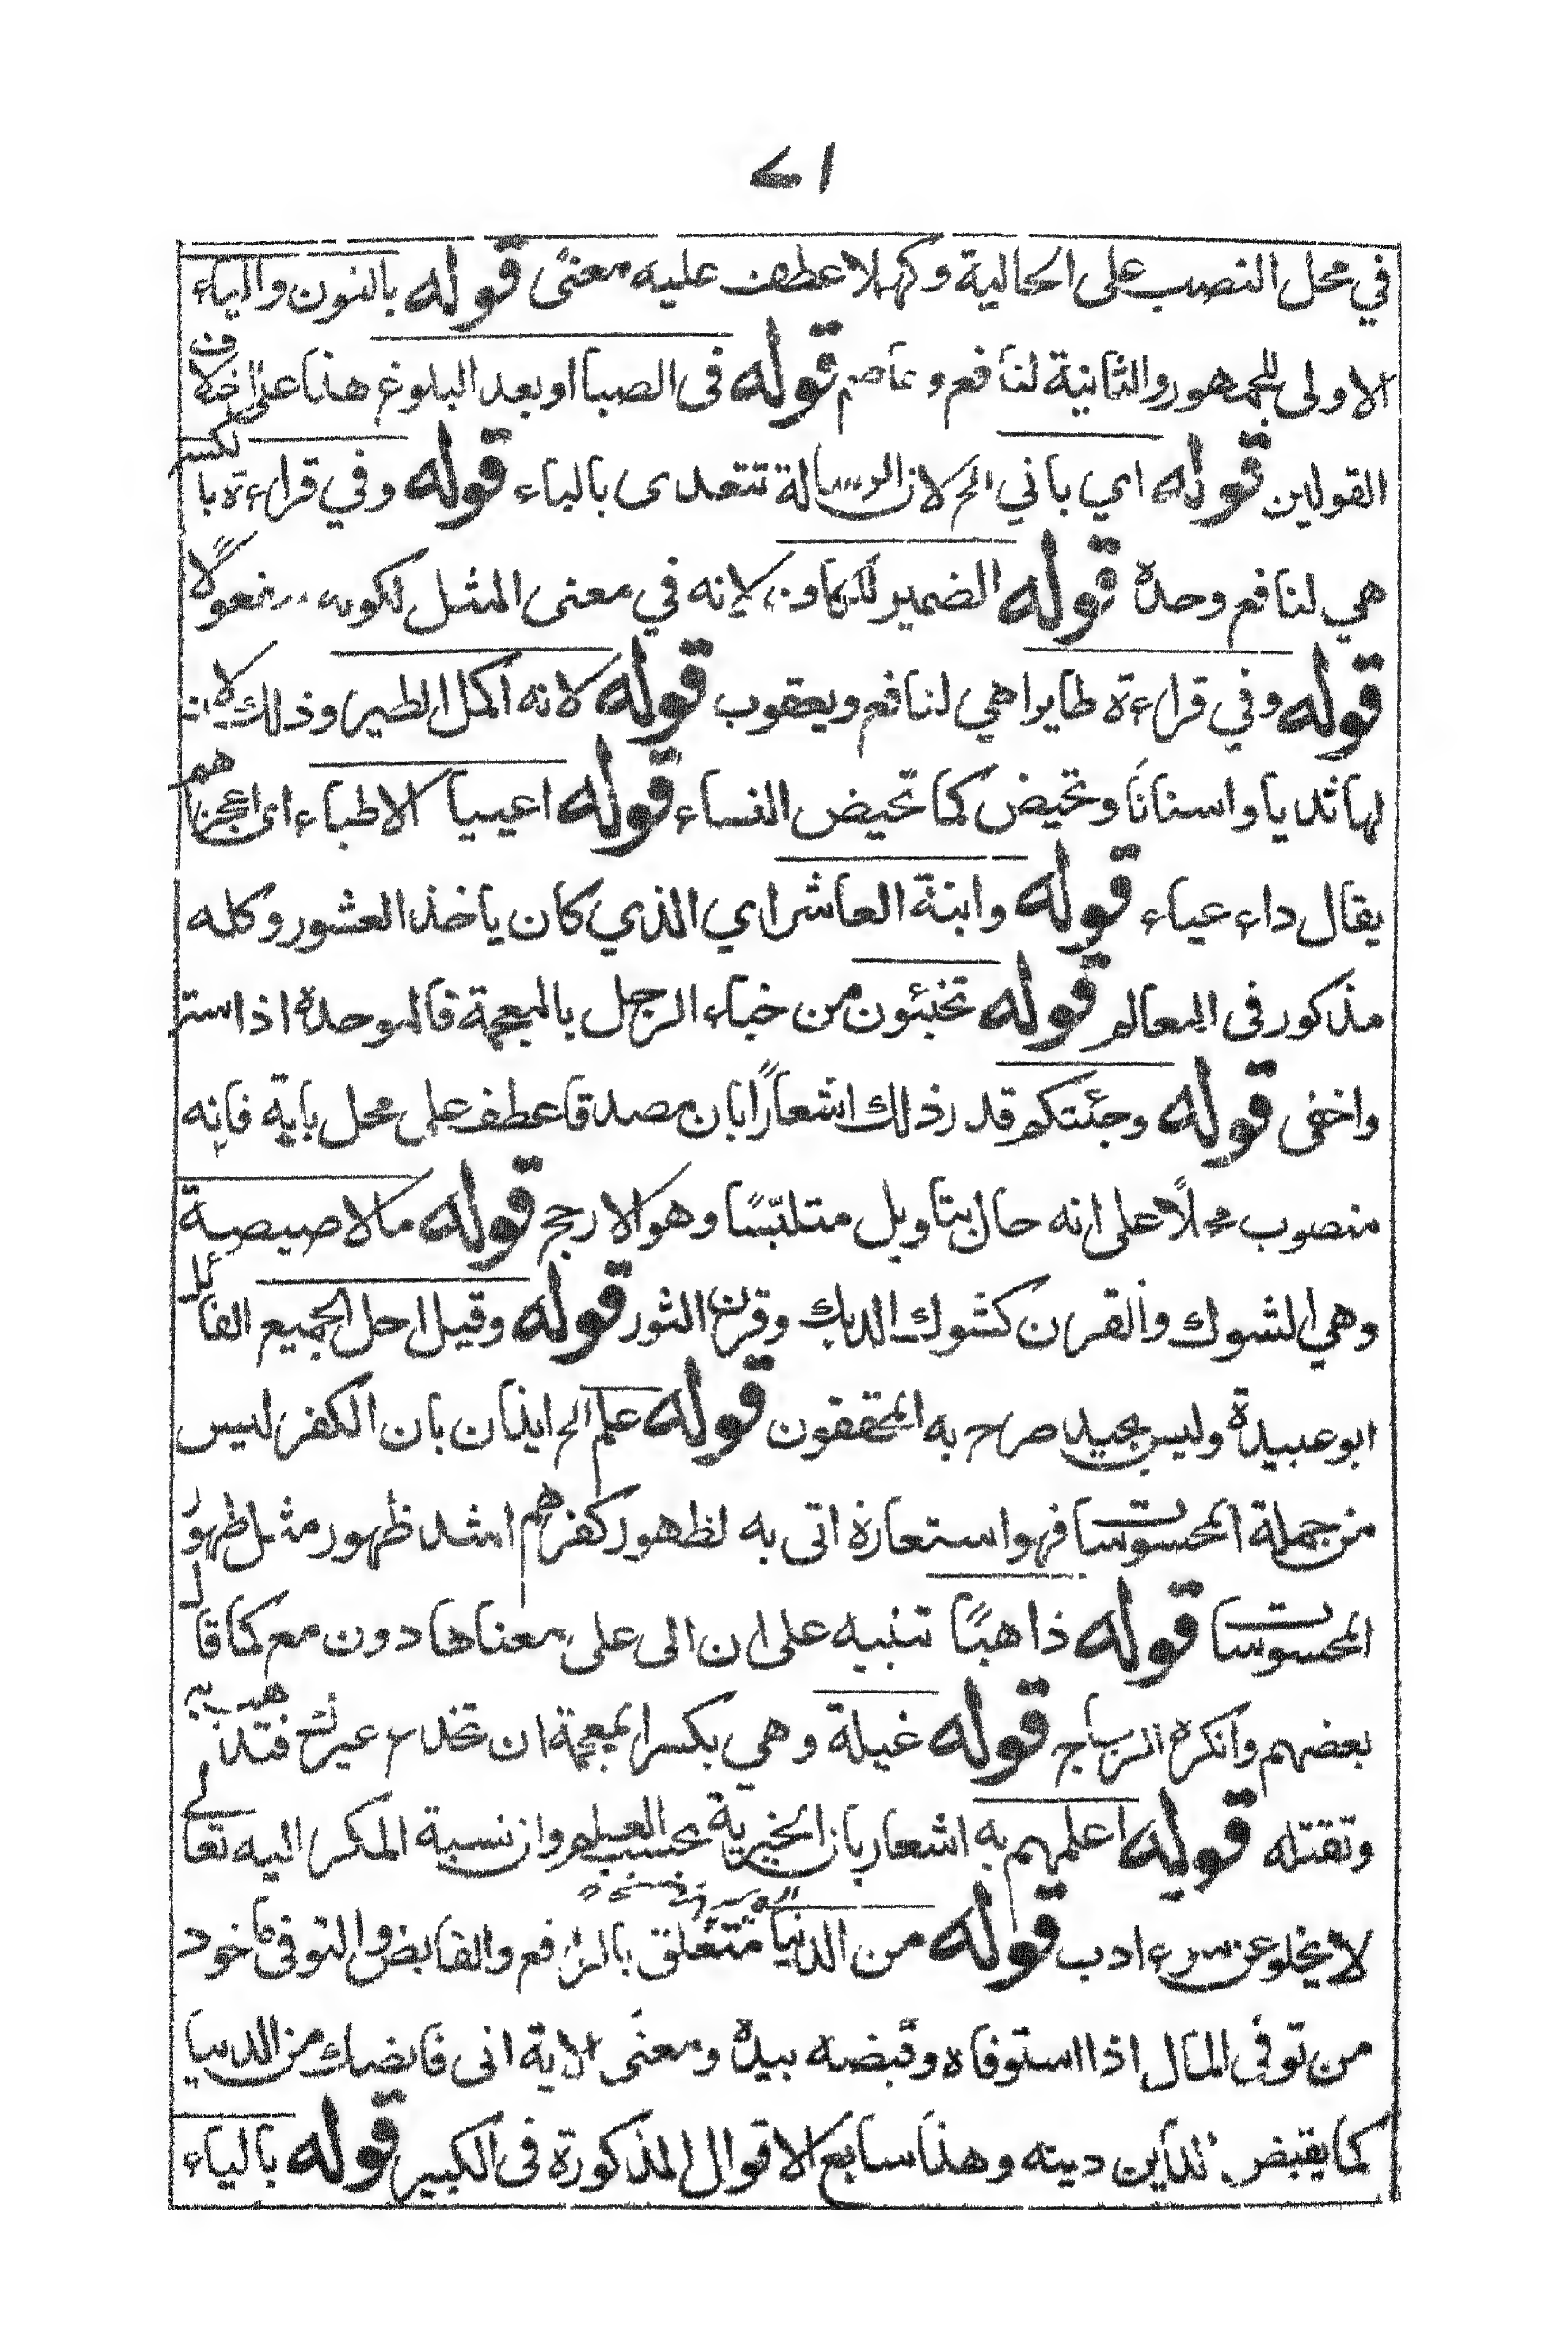 ٧١
في محل النصب على الحالية وكهلا عطف عليه معنى قوله بالنون والياء
الاولى للجمهور والثانية لنافع وعاصم قوله فى الصبا او بعد البلوغ هذا على اختلاف
القولين قوله اي باني الخ لان الرسالة تتعدى بالباء قوله وفي قراءة بالكسر
هي لنافع وحدة قوله الضمير للكاف لانه في معنى المثل لكونه مفعولاً
قوله وفي قراءة طايرا هي لنافع ويعقوب قوله لانه اكمل الطير وذلك لان
لها ثديا واسنانا وتحيض كما تحيض النساء قوله اعييا الاطباء اى اعجزاهم
يقال داء عياء قوله وابنة العاشر اي الذي كان ياخذ العشور وكله
مذكور فى المعالم قوله تخبئون من خباء الرجل بالمعجمة فالموحدة اذا استر
واخفى قوله وجئتكم قدر ذلك اشعارًا بان مصدقا عطف على محل باية فانه
منصوب محلاً على انه حال بتاويل متلبّسًا وهو الارجح قوله مالا صيصية
وهي الشوك والقرن كشوك الديك وقرن الثور قوله وقيل احل الجميع القائل
ابو عبيدة وليس بجيد صرح به المحققون قوله علم الخ ايذان بان الكفر ليس
من جملة المحسوسات فهو استعارة اتى به لظهور كفرهم اشد ظهور مثل ظهور
المحسوسات قوله ذاهبًا تنبيه على ان الى على معناها دون مع كما قال
بعضهم وانكره الزجاج قوله غيلة وهي بكسر المعجمة ان تخدع غيرك فتذهب به
وتقتله قوله اعلمهم به اشعار بان الخيرية بحسب العلم وان نسبة المكر اليه تعالى
لا يخلو عن سوء ادب قوله من الدنيا متعلق بالرفع والقابض والتوفى ماخوذ
من توفى المال اذا استوفاه وقبضه بيدة ومعنى الاية انى قابضك من الدنيا
كما يقبض الداين دينه وهذا سابع الاقوال المذكورة فى الكبير قوله بالياء